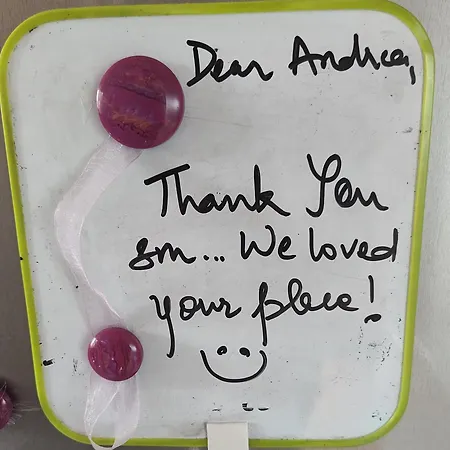 Dear Andrea,
Thank You
sm... We loved
your place!